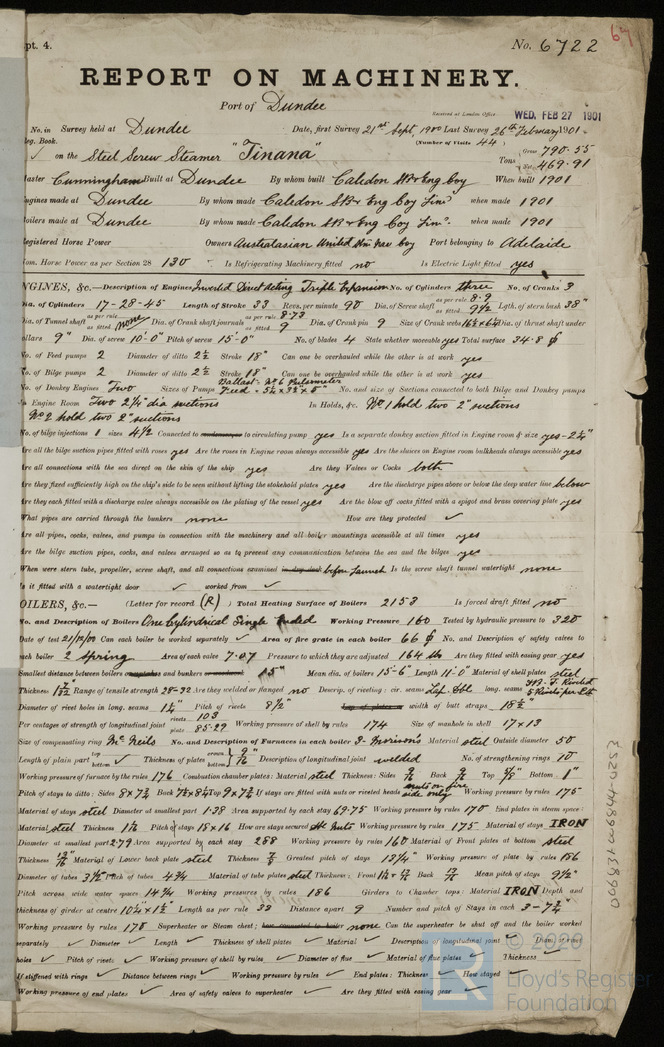 pt. 4.
No. 6722
67
REPORT ON MACHINERY.
Port of Dundee
Received at London Office WED. FEB 27 1901
No. in Survey held at Dundee Date, first Survey 21st Sept, 1900 Last Survey 26th February 1901
eg. Book. (Number of Visits 44)
✓ on the Steel Screw Steamer "Tinana" Tons Gross 790.55 Net 469.91
aster Cunningham Built at Dundee By whom built Caledon SB & Eng Coy When built 1901
ngines made at Dundee By whom made Caledon SB & Eng Coy Limd when made 1901
oilers made at Dundee By whom made Caledon SB & Eng Coy Limd. when made 1901
egistered Horse Power Owners Australasian United Stm Nav Coy Port belonging to Adelaide
om. Horse Power as per Section 28 130 Is Refrigerating Machinery fitted no Is Electric Light fitted yes
NGINES, &c.— Description of Engines Inverted Direct Acting Triple Expansion No. of Cylinders three No. of Cranks 3
ia. of Cylinders 17-28-45 Length of Stroke 33 Revs. per minute 90 Dia. of Screw shaft as per rule 8.9 as fitted 9 1/2 Lgth. of stern bush 38"
Dia. of Tunnel shaft as per rule as fitted none Dia. of Crank shaft journals as per rule 8.73 as fitted 9 Dia. of Crank pin 9 Size of Crank webs Dia. of thrust shaft under
ollars 9" Dia. of screw 10'-0" Pitch of screw 15'-0" No. of blades 4 State whether moveable yes Total surface 34.8
No. of Feed pumps 2 Diameter of ditto 2 1/2 Stroke 18" Can one be overhauled while the other is at work yes
No. of Bilge pumps 2 Diameter of ditto 2 1/2 Stroke 18" Can one be overhauled while the other is at work yes
No. of Donkey Engines Two Sizes of Pumps Ballast - No 6 Pulsometer Feed - No. and size of Suctions connected to both Bilge and Donkey pumps
n Engine Room Two 2 1/4" dia suctions In Holds, &c. No 1 hold two 2" suctions
No 2 hold two 2" suctions
No. of bilge injections 1 sizes 4 1/2 Connected to to circulating pump yes Is a separate donkey suction fitted in Engine room & size yes - 2 1/4"
re all the bilge suction pipes fitted with roses yes Are the roses in Engine room always accessible yes Are the sluices on Engine room bulkheads always accessible yes
re all connections with the sea direct on the skin of the ship yes Are they Valves or Cocks both
re they fixed sufficiently high on the ship's side to be seen without lifting the stokehold plates yes Are the discharge pipes above or below the deep water line below
re they each fitted with a discharge valve always accessible on the plating of the vessel yes Are the blow off cocks fitted with a spigot and brass covering plate yes
hat pipes are carried through the bunkers none How are they protected ✓
re all pipes, cocks, valves, and pumps in connection with the machinery and all boiler mountings accessible at all times yes
re the bilge suction pipes, cocks, and valves arranged so as to prevent any communication between the sea and the bilges yes
When were stern tube, propeller, screw shaft, and all connections examined in dry dock before launch Is the screw shaft tunnel watertight none
s it fitted with a watertight door ✓ worked from ✓
OILERS, &c.— (Letter for record (R)) Total Heating Surface of Boilers 2153 Is forced draft fitted no
No. and Description of Boilers One Cylindrical Single Ended Working Pressure 160 Tested by hydraulic pressure to 320
Date of test 21/12/00 Can each boiler be worked separately ✓ Area of fire grate in each boiler 66 No. and Description of safety valves to
ach boiler 2 Spring Area of each valve 7.07 Pressure to which they are adjusted 164 lb Are they fitted with easing gear yes
Smallest distance between boilers or uptakes and bunkers or woodwork 15" Mean dia. of boilers 15'-6" Length 11'-0" Material of shell plates steel
Thickness Range of tensile strength 28-32 Are they welded or flanged no Descrip. of riveting: cir. seams Lap Dbl long. seams 5 Rivets per
Diameter of rivet holes in long. seams Pitch of rivets 8 1/2" Lap of plates or width of butt straps 18 1/2"
Per centages of strength of longitudinal joint rivets 103 plate 85.29 Working pressure of shell by rules 174 Size of manhole in shell 17×13
Size of compensating ring McNeils No. and Description of Furnaces in each boiler 3 - Morison's Material steel Outside diameter 50
Length of plain part top bottom ✓ Thickness of plates crown bottom Description of longitudinal joint welded No. of strengthening rings 10
Working pressure of furnace by the rules 176 Combustion chamber plates: Material steel Thickness: Sides Back Top 5/8" Bottom 1"
Pitch of stays to ditto: Sides Back Top If stays are fitted with nuts or riveted heads nuts on fire side only Working pressure by rules 175
Material of stays steel Diameter at smallest part 1.38 Area supported by each stay 69.75 Working pressure by rules 170 End plates in steam space:
Material steel Thickness Pitch of stays 18×16 How are stays secured Dbl Nuts Working pressure by rules 175 Material of stays IRON
Diameter at smallest part 2.79 Area supported by each stay 288 Working pressure by rules 160 Material of Front plates at bottom steel
Thickness Material of Lower back plate steel Thickness Greatest pitch of stays 13 1/4" Working pressure of plate by rules 186
Diameter of tubes 3 1/2" Pitch of tubes 4 3/4 Material of tube plates steel Thickness: Front Back Mean pitch of stays 9 1/2"
Pitch across wide water spaces 14 3/4 Working pressures by rules 186 Girders to Chamber tops: Material IRON Depth and
thickness of girder at centre 10 1/4"×1 1/2" Length as per rule 32 Distance apart 9 Number and pitch of Stays in each 3 - 7 3/4"
Working pressure by rules 178 Superheater or Steam chest; how connected to boiler none Can the superheater be shut off and the boiler worked
separately ✓ Diameter ✓ Length ✓ Thickness of shell plates ✓ Material ✓ Description of longitudinal joint ✓ Diam. of rivet
holes ✓ Pitch of rivets ✓ Working pressure of shell by rules ✓ Diameter of flue ✓ Material of flue plates ✓ Thickness ✓
If stiffened with rings ✓ Distance between rings ✓ Working pressure by rules ✓ End plates: Thickness ✓ How stayed ✓
Working pressure of end plates ✓ Area of safety valves to superheater ✓ Are they fitted with easing gear ✓
© 2020
Lloyd's Register
Foundation
LR